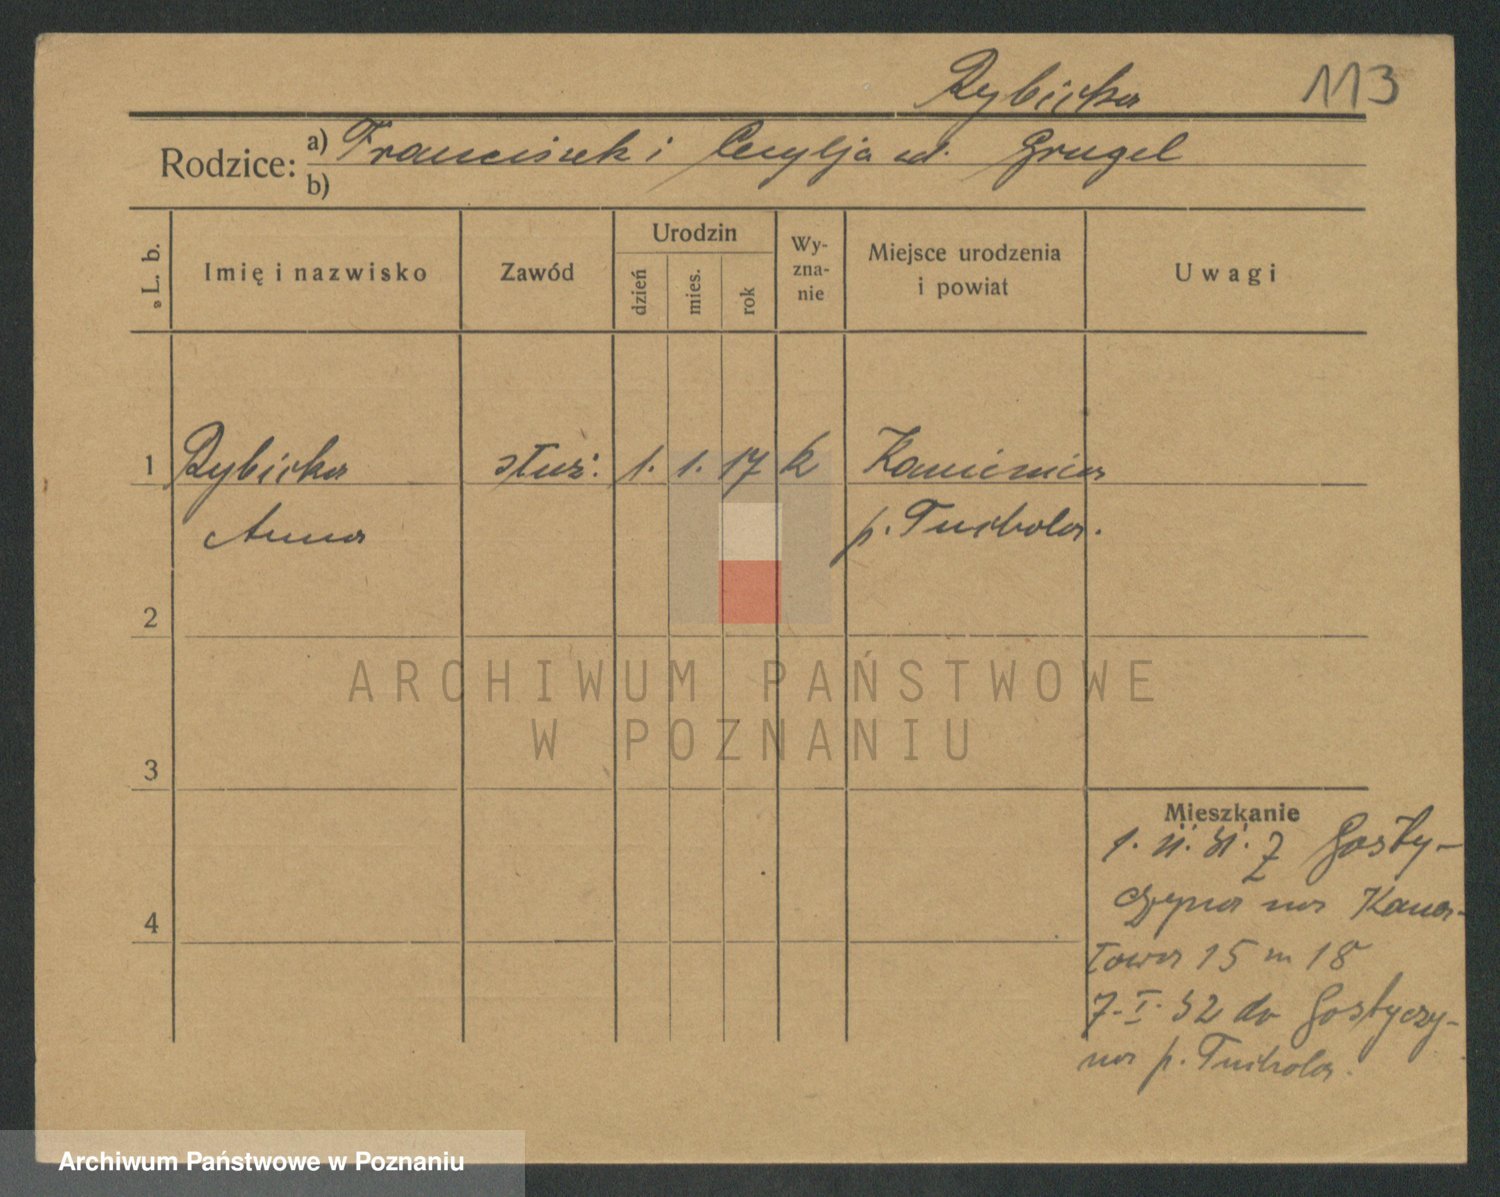 Rybicka 113
Rodzice: a) Franciszek i Cecylja ud. Grugel
b)
L. b. Imię i nazwisko Zawód Urodzin dzień mies. rok Wy-zna-nie Miejsce urodzenia i powiat Uwagi
1 Rybicka służ. 1. 1. 17 k Kamienica
Anna p. Tuchola.
2
ARCHIWUM PAŃSTWOWE
W POZNANIU
3
Mieszkanie
1. 31. z Gosty-
czyna na Kana-
4
łowa 15 m 18
7. I. 32 do Gostyczy-
na p. Tuchola.
Archiwum Państwowe w Poznaniu